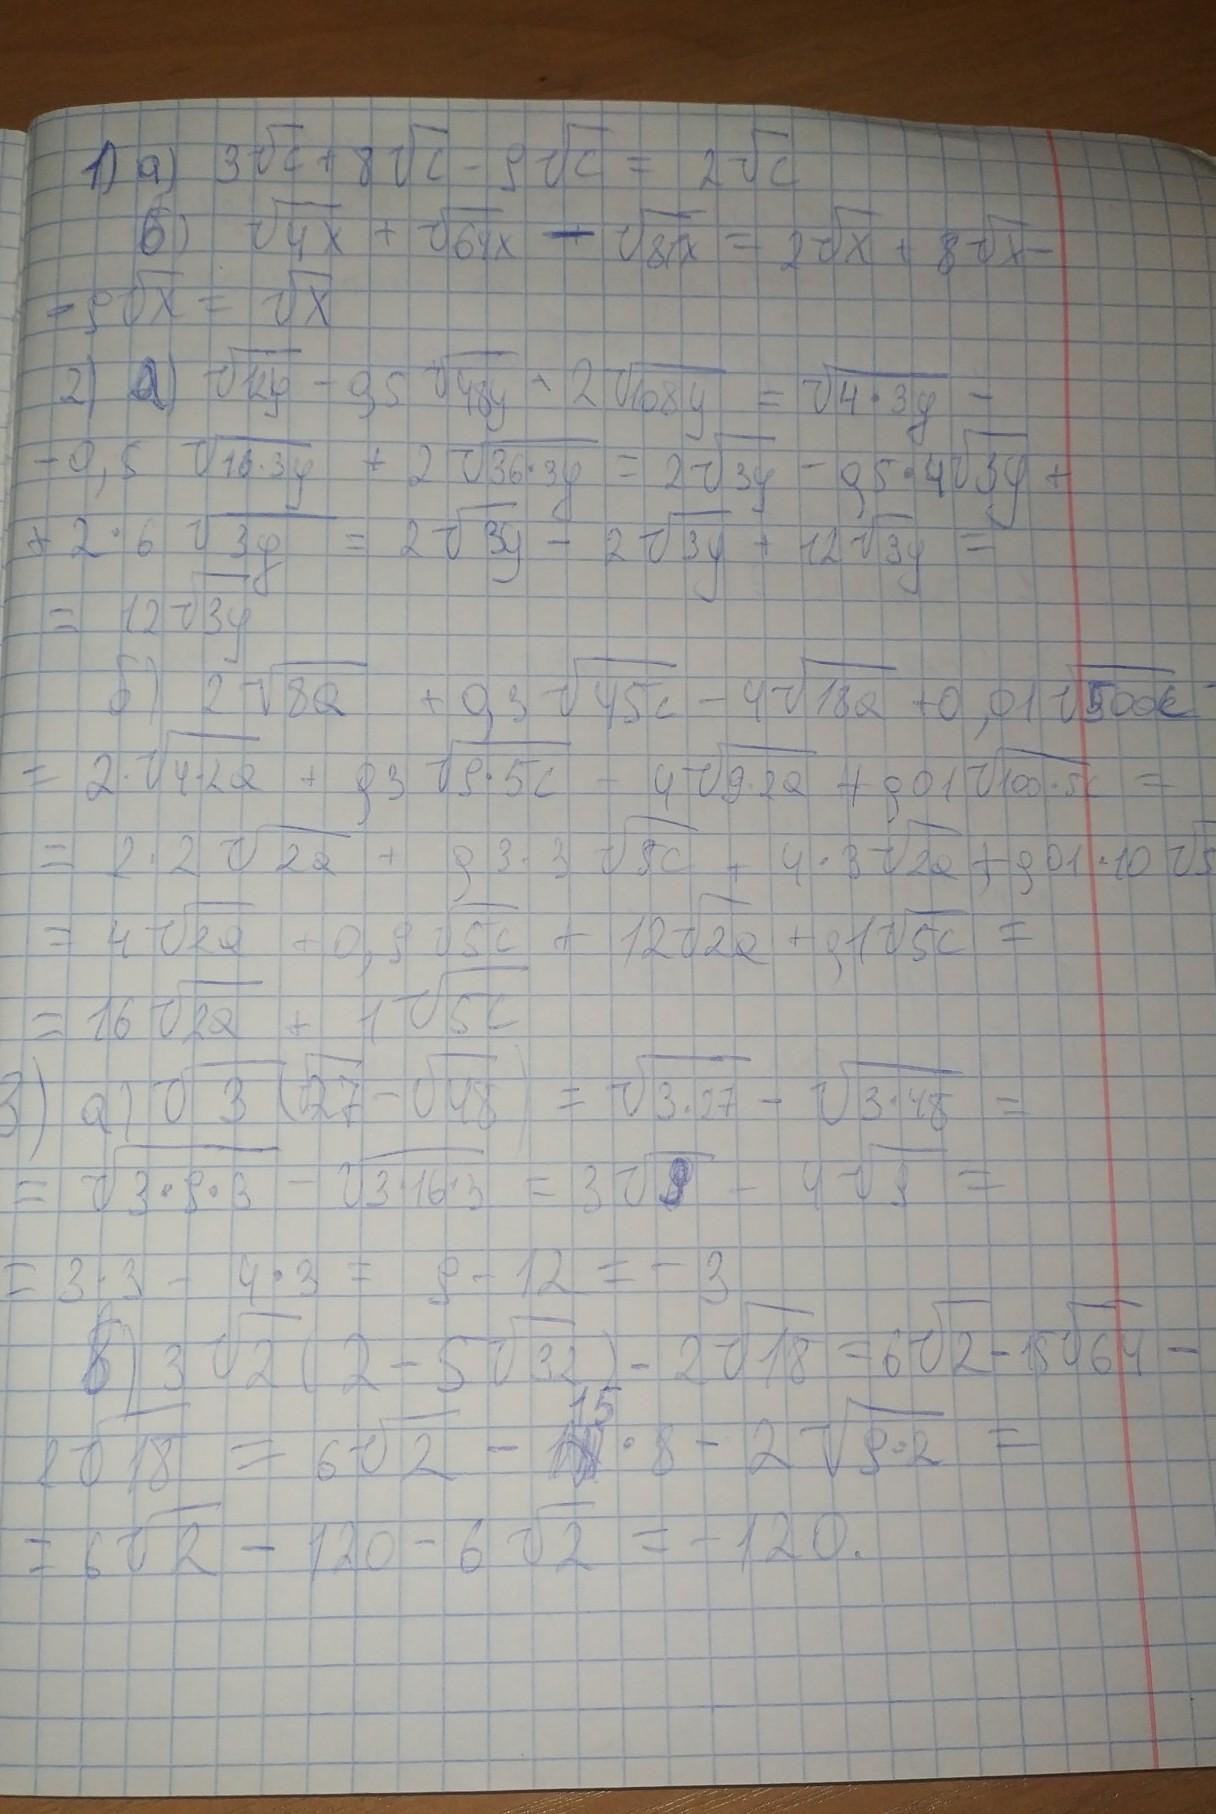 1) а) 3√c + 8√c - 9√c = 2√c
б) √4x + √64x - √81x = 2√x + 8√x -
- 9√x = √x
2) а) √12y - 0,5 √48y + 2√108y = √4·3y -
- 0,5 √16·3y + 2√36·3y = 2√3y - 0,5·4√3y +
+ 2·6 √3y = 2√3y - 2√3y + 12√3y =
= 12√3y
б) 2√8a + 0,3√45c - 4√18a + 0,01√500c =
= 2·√4·2a + 0,3√9·5c - 4√9·2a + 0,01√100·5c =
= 2·2√2a + 0,3·3√5c + 4·3√2a + 0,01·10√5
= 4√2a + 0,9√5c + 12√2a + 0,1√5c =
= 16√2a + 1√5c
3) а) √3 (√27 - √48) = √3·27 - √3·48 =
= √3·9·3 - √3·16·3 = 3√9 - 4√9 =
= 3·3 - 4·3 = 9 - 12 = -3
б) 3√2 (2 - 5√32) - 2√18 = 6√2 - 15√64 -
2√18 = 6√2 - 15·8 - 2√9·2 =
= 6√2 - 120 - 6√2 = -120.